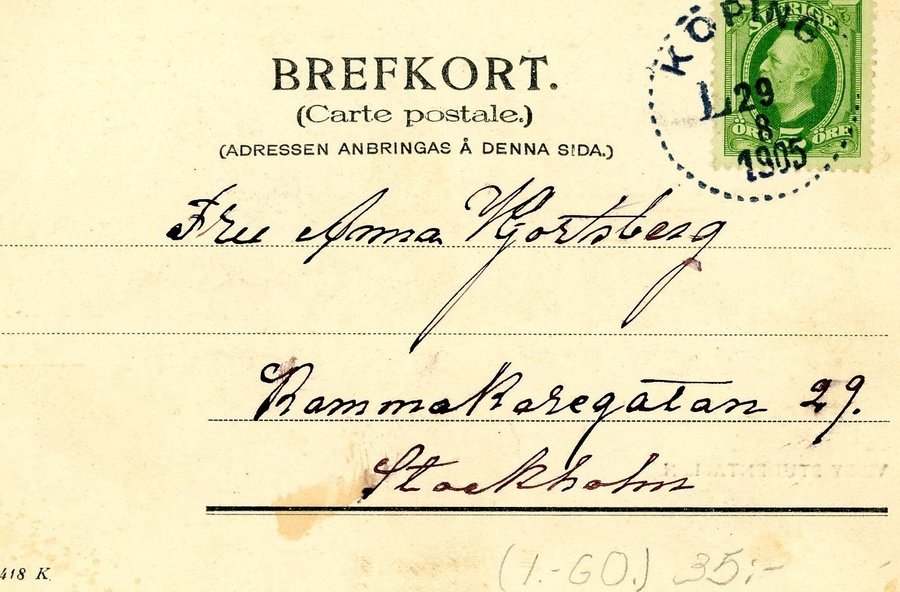 BREFKORT.
(Carte postale.)
(ADRESSEN ANBRINGAS Å DENNA SIDA.)
KÖPING
SVERIGE
L 29
8
1905
ÖRE 5 ÖRE
Fru Anna Hjortsberg
Kammakaregatan 29.
Stockholm
418 K.
(1.-GO.) 35:-